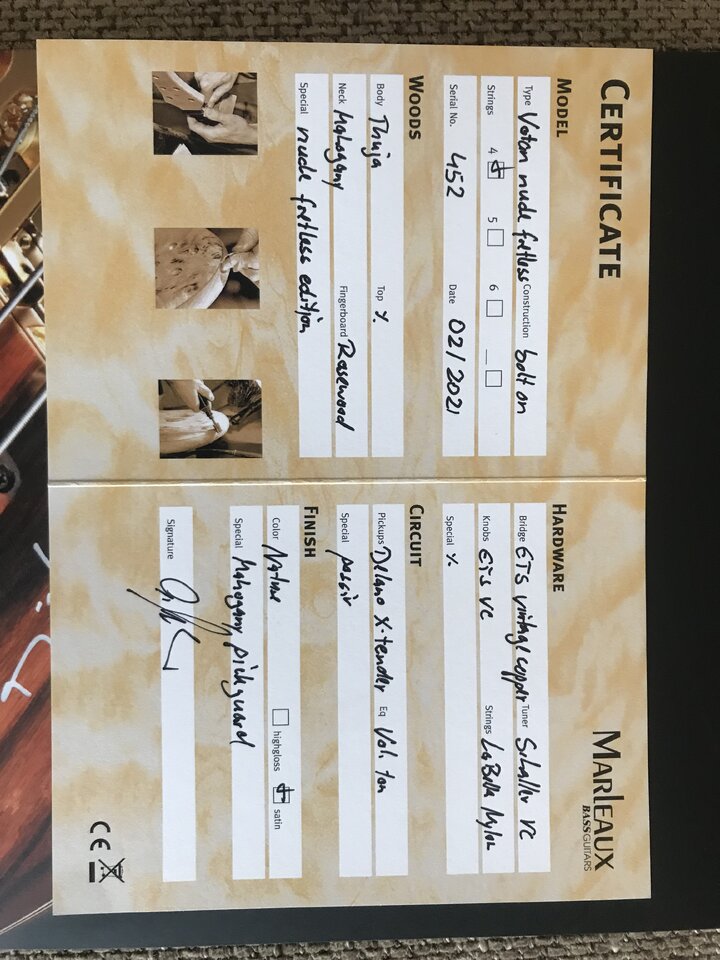 CERTIFICATE
MODEL
Type Votan nude fretless Construction bolt on
Strings 4 5 6
Serial No. 452 Date 02/2021
WOODS
Body Thuja Top %
Neck Mahogany Fingerboard Rosewood
Special nude fretless edition
MARLEAUX
BASSGUITARS
HARDWARE
Bridge ETS vintage copper Tuner Schaller VC
Knobs ETS VC Strings LaBella Nylon
Special %
CIRCUIT
Pickups Delano X-tender Eq Vol. ton
Special passiv
FINISH
Color Nature highgloss satin
Special Mahogany pickguard
Signature
CE